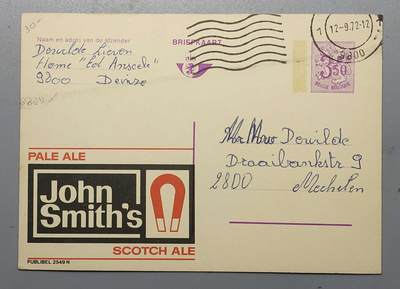 Naam en adres van de afzender
BRIEFKAART
Dewilde Lieven
Home "Ed. Anseele"
9800 Deinze
1 12-9.72-12
9800
3,50
BELGIE-BELGIQUE
Mr Mevr Dewilde
Draaibankstr 9
2800 Mechelen
PALE ALE
John
Smith's
SCOTCH ALE
PUBLIBEL 2549 N